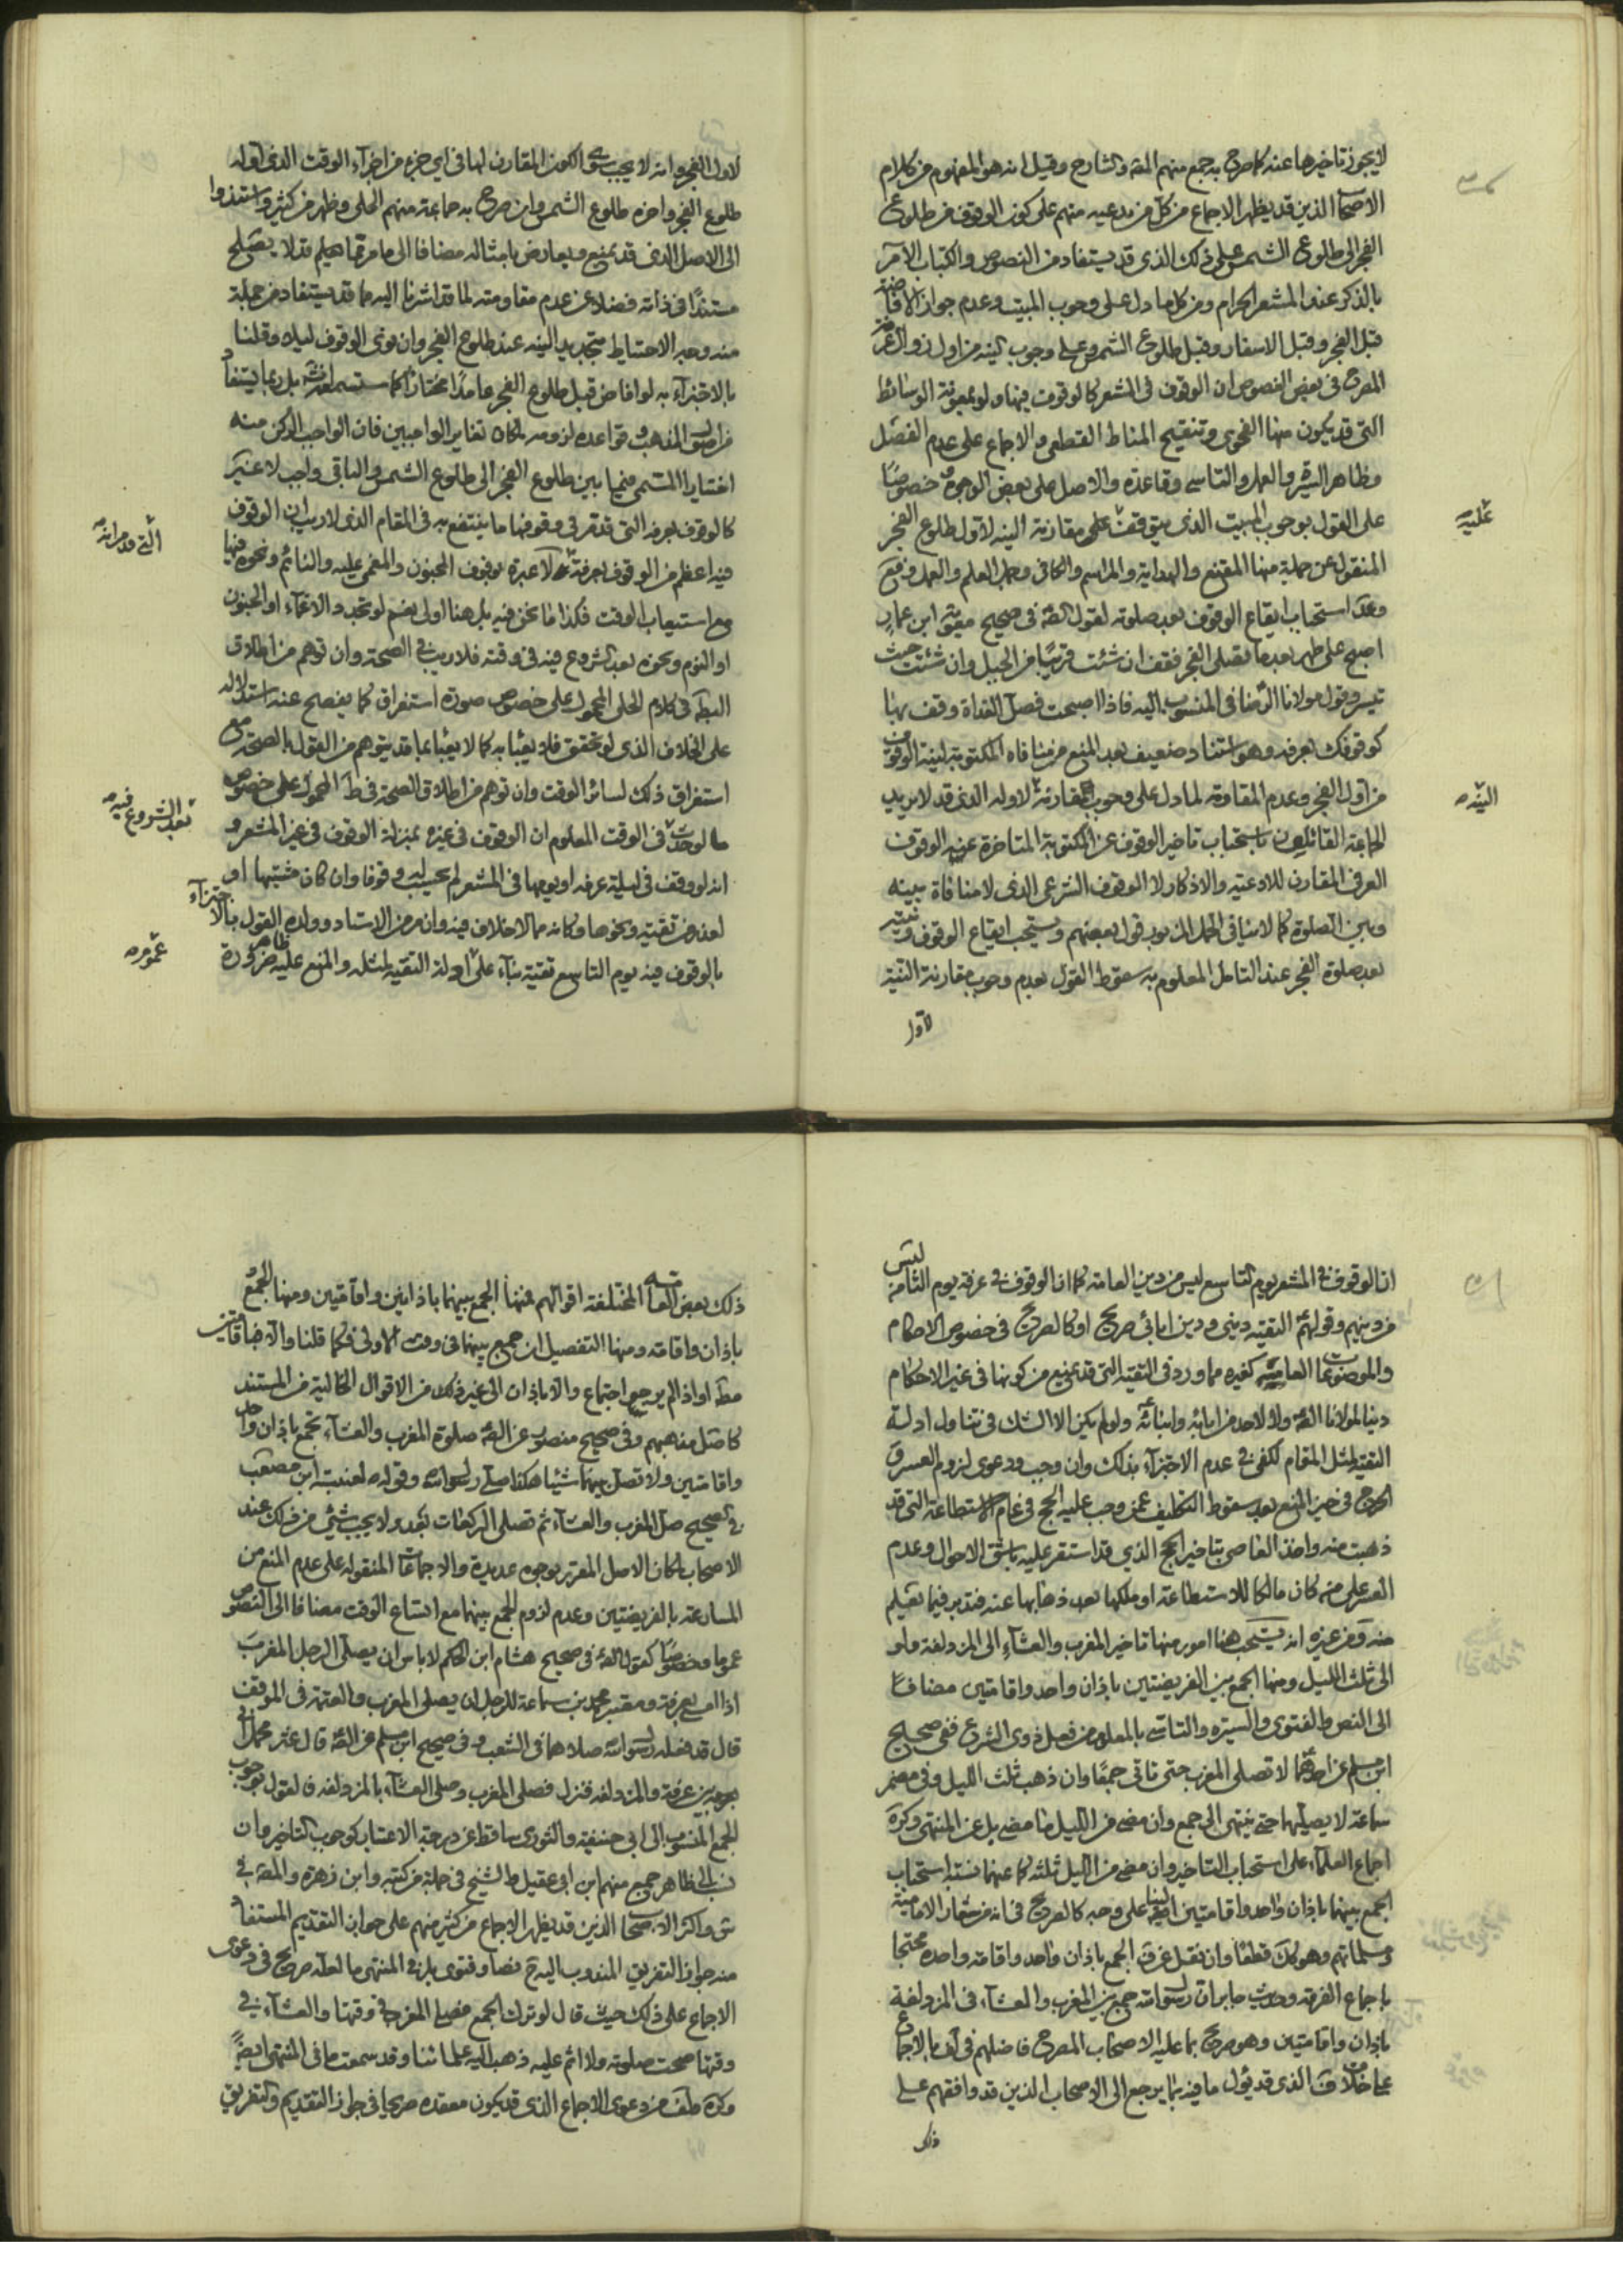 لا يجوز تاخيرها عنه كما صرح به جمع منهم المص والشارح وقيل انه هو المفهوم من كلام
الاصحاب الذين قد يظهر الاجماع من كل من يدعيه منهم على كون الوقوف من طلوع
الفجر الى طلوع الشمس على ذلك الذى قد يستفاد من النصوص والكتاب الآمر
بالذكر عند المشعر الحرام ومن كلما دل على وجوب المبيت وعدم جواز الافاضة
قبل الفجر وقبل الاسفار وقبل طلوع الشمس وعلى وجوب النية من اول زوال عرفة
المصرح فى بعض النصوص ان الوقوف فى المشعر كالوقوف فيها ولو بمعونة الوسائط
التى قد يكون منها الفحوى وتنقيح المناط القطعى والاجماع على عدم الفصل
وظاهر السيرة والعمل والتاسى وقاعدته والاصل على بعض الوجوه خصوصًا
على القول بوجوب المبيت الذى يتوقف على مقارنة النية لاول طلوع الفجر
عليه
المنقول عن جملة منها المقنع والهداية والمراسم والكافى وجمل العلم والعمل
وعدا استحباب ايقاع الوقوف بعد صلوته لقول الص فى صحيح معوية ابن عمار
اصبح على طهر بعد ما تصلى الفجر فقف ان شئت قريبًا من الجبل وان شئت حيث
تيسر وقول مولانا الرضا فى المنسوب اليه فاذا اصبحت فصل الغداة وقف بها
كوقوفك بعرفه وهو استناد ضعيف بعد المنع من منافاه المكتوبة لنية الوقوف
من اول الفجر وعدم المقاومة لما دل على وجوب مقارنة لاوله الذى قد لا يريد
النية
الجماعة القائلون باستحباب تاخير الوقوف عن المكتوبة المتاخرة عنه الوقوف
العرفى المقارن للادعيه والاذكار ولا الوقوف الشرعى الذى لا منافاة بينه
وبين الصلوة كما لا ينافى قول بعضهم ويستحب ايقاع الوقوف ونيته
بعد صلوة الفجر عند التامل المعلوم به سقوط القول بعدم وجوب مقارنة النية
لاول
لاول الفجر وانه لا يجب الكون المقارن لها فى اى جزء من اجزاء الوقت الذى اوله
طلوع الفجر واخره طلوع الشمس وان صرح به جماعة منهم الحلى وظهر من كثير واستندوا
الى الاصل الذى قد يمنع ويعارض بامثاله مضافا الى ما مر
مستندًا فى ذاته فضلا عن عدم مقاومته لما قد اشرنا اليه مما قد يستفاد من جملة
منه وجه الاحتياط بتجديد النية عند طلوع الفجر وان نوى الوقوف ليلا وقلنا
بالاجتزاء به لو افاض قبل طلوع الفجر عامدًا مختارًا كما ستسمعه بل ربما يستفاد
من اصول المذهب وقواعده لزومه لمكان تغاير الواجبين فان الواجب الركن منه
اختيارا المسمى فيما بين طلوع الفجر الى طلوع الشمس والباقى واجب لا غير
كالوقوف بعرفه التى قد مر فى وقوفها ما ينتفع به فى المقام الذى لا ريب ان الوقوف
فيه اعظم من الوقوف بعرفة لا عبرة بوقوف المجنون والمغمى عليه والنائم ونحوه فيها
مع استيعاب الوقت فكذا ما نحن فيه بل هنا اولى نعم لو تجدد الاغماء او الجنون
او النوم ونحوه بعد الشروع فيه فى وقته فلا ريب فى الصحة وان توهم من اطلاق
فى كلام الحلى المحمول على خصوص صورة استغراق كما يفصح عنه استدلاله
على الخلاف الذى لو تحقق فلا يعبأ به كما لا يعبأ بما قد يتوهم من القول بالصحة مع
استغراق ذلك لسائر الوقت وان توهم من اطلاق الصحة فى ط المحمول على خصوص
بعد الشروع فيه
ما لو حدث فى الوقت المعلوم ان الوقوف فى غيره بمنزلة الوقوف فى غير المشعر و
انه لو وقف فى ليلة عرفه او يومها فى المشعر لم يحسب له وقوفا وان كان مشتبها او
لعذر من تقية ونحوها وكانه مما لا خلاف فيه وان مر من الاستاد وولده القول بالاجتزاء
بالوقوف فيه يوم التاسع تقية بناء على ادلة التقيه لمثله والمنع عليه ظاهر ضرورة
ان الوقوف فى المشعر يوم التاسع ليس من دين العامة كما ان الوقوف فى عرفه يوم الثامن ليس
من دينهم وقولهم التقية دينى ودين ابائى صريح او كالصريح فى خصوص الاحكام
والموضوعات العامية كغيره مما ورد فى التقية التى قد يمنع من كونها فى غير الاحكام
دينا لمولانا الص ولا لاحد من ابائه وابنائه ولو لم يكن الا الشك فى تناول ادلة
التقية لمثل المقام لكفى فى عدم الاجتزاء بذلك وان وجب ودعوى لزوم العسر و
الحرج فى حيز المنع بعد سقوط التكليف عمن وجب عليه الحج فى عام الاستطاعة التى قد
ذهبت منه واخذ العاصى بتاخير الحج الذي قد استقر عليه باشق الاحوال وعدم
العسر على من كان مالكا للاستطاعة او ملكها بعد ذهابها عنه فتدبر فيما تعلم
منه ومن غيره انه يستحب هنا امور منها تاخير المغرب والعشاء الى المزدلفة ولو
الى ثلث الليل ومنها الجمع بين الفريضتين باذان واحد واقامتين مضافًا
الى النص والفتوى والسيره والتاسى بالمعلوم من فعل ذوى الشرع ففى صحيح
ابن مسلم عن احدهما لا تصلى المغرب حتى تاتى جمعًا وان ذهب ثلث الليل وفى مضمر
سماعة لا يصليهما حتى ينتهى الى جمع وان مضى من الليل ما مضى بل عن المنتهى وكره
اجماع العلماء على استحباب التاخير وان مضى من الليل ثلثه كما عنهما نسبة استحباب
الجمع بينهما باذان واحد واقامتين الينا على وجه كالصريح فى انه من شعار الامامية
ومسلماتهم وهو كك قطعًا وان نقل عن ف الجمع باذان واحد واقامة واحدة محتجا
باجماع الفرقه وحديث جابر ان رسول الله جمع بين المغرب والعشاء فى المزدلفة
باذان واقامتين وهو صريح بما عليه الاصحاب المصرح فاضلهم فى بالاجماع
على خلاف الذى قد يئول ما فيه بما يرجع الى الاصحاب الذين قد وافقهم على
ذلك
ذلك بعض العامة المختلفة اقوالهم فمنها الجمع بينهما باذانين واقامتين ومنها الجمع
باذان واقامة ومنها التفصيل ان جمع بينهما فى وقت الاولى فكما قلنا والا فباقامتين
مط او اذا لم يرج اجتماع والا باذان الى غير ذلك من الاقوال الخالية من المستند
كاصل مذهبهم وفى صحيح منصور عن الص صلوة المغرب والعشاء تجمع باذان واحد
واقامتين ولا تصل بينهما شيئا هكذا صلى رسول الله وقوله لعنبسة ابن مصعب
فى الصحيح صل المغرب والعشاء ثم تصلى الركعات بعد ولا يجب شئ من ذلك عند
الاصحاب لمكان الاصل المقرر بوجوه عديدة والاجماعات المنقوله على عدم المنع من
المسارعة بالفريضتين وعدم لزوم الجمع بينهما مع اتساع الوقت مضافا الى النصوص
عموما وخصوصًا كقول الص فى صحيح هشام ابن الحكم لا باس ان يصلى الرجل المغرب
اذا امسى بعرفة ومعتبر محمد بن سماعة للرجل ان يصلى المغرب والعتمة فى الموقف
قال قد فعله رسول الله صلاهما فى الشعب وفى صحيح ابن مسلم عن الص قال عثر محمل ابى
بين عرفة والمزدلفه فنزل فصلى المغرب وصلى العشاء بالمزدلفه فالقول بوجوب
الجمع المنسوب الى ابى حنيفة والثورى ساقط عن درجة الاعتبار كوجوب التاخير وان
نسب الى ظاهر جمع منهم ابن ابى عقيل والشيخ فى جملة من كتبه وابن زهرة والمص فى
ش واكثر الاصحاب الذين قد يظهر الاجماع من كثير منهم على جواز التقديم المستفاد
منه جواز التفريق المندوب اليه ح نصا وفتوى بل فى المنتهى ما لعله صريح فى دعوى
الاجماع على ذلك حيث قال لو ترك الجمع فصلى المغرب فى وقتها والعشاء فى
وقتها صحت صلوته ولا اثم عليه ذهب اليه علمائنا وقد سمعت ما فى المنتهى ايضًا
وكره من دعوى الاجماع الذى قد يكون معقده صريحا فى جواز التقديم والتفريق